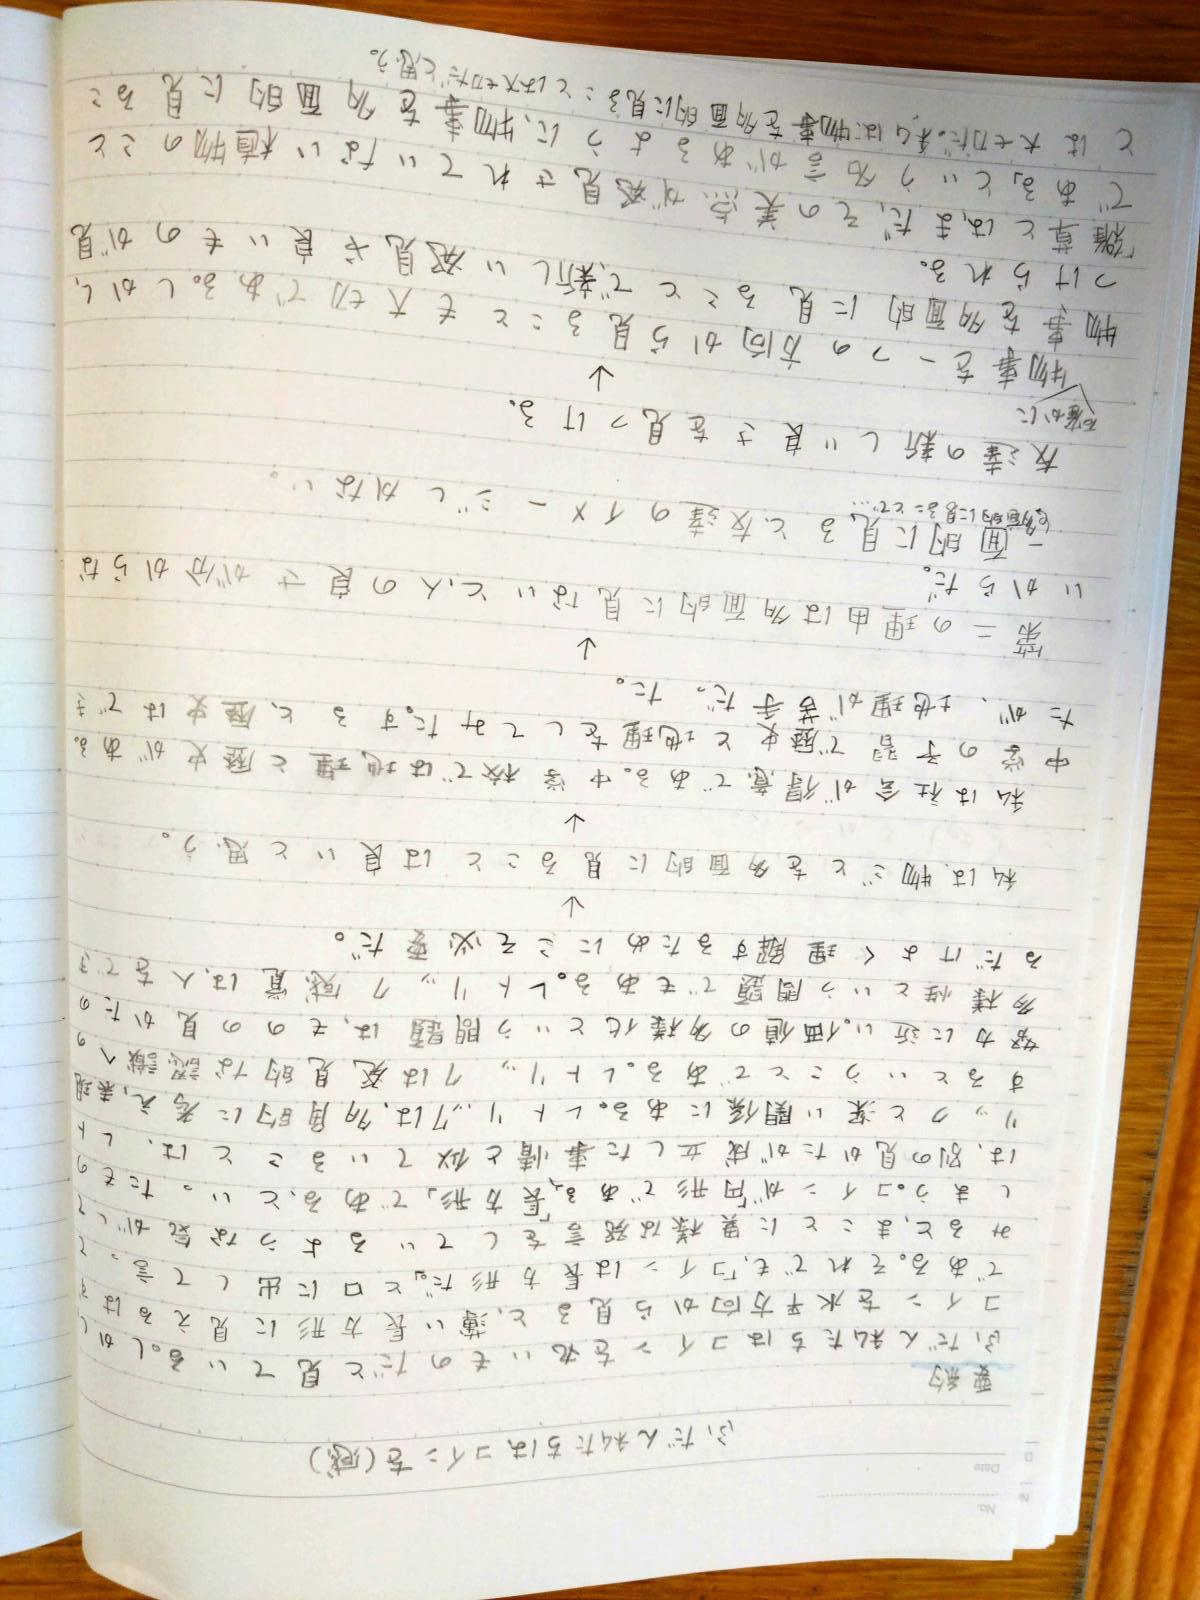 No.
Date
ふだん私たちはコインを(感)
要約
ふだん私たちはコインを丸いものだと見ている。しかし
コインを水平方向から見ると、薄い長方形に見えるはず
である。それでも、「コインは長方形だ。」と口に出して言って
みると、まことに異様な発言をしているような気がして
しまう。コインが「円形である」、「長方形」である、といったもの
は、別の見かたが成立した事情と似ていることは、レト
リックと深い関係にある。レトリックは、多角的に考え、表現
するということである。レトリックは発見的な認識への
努力に近い。価値の多様化という問題は、ものの見かたの
多様性という問題でもある。レトリック感覚は、人をでき
るだけよく理解するためにこそ必要だ。
↓
私は、物ごとを多面的に見ることは良いと思う。
↓
私は社会が得意である。中学校では、地理と歴史がある。
中学の予習で歴史と地理をしてみた。すると、歴史はでき
たが、地理が苦手だった。
↓
第二の理由は多面的に見ないと、人の良さが分からな
いからだ。
一面的に見ると友達のイメージしかない。
(多面的に見ることで…
友達の新しい良さを見つける。
↓
確かに
物事を一つの方向から見ることも大切である。しかし、
物事を多面的に見ることで、新しい発見や良いものが見
つけられる。
「雑草とは、まだ、その美点が発見されていない植物のこと
である」という名言があるように、物事を多面的に見るこ
とは大切だ。私は物事を多面的に見る
ことは大切だと思う。